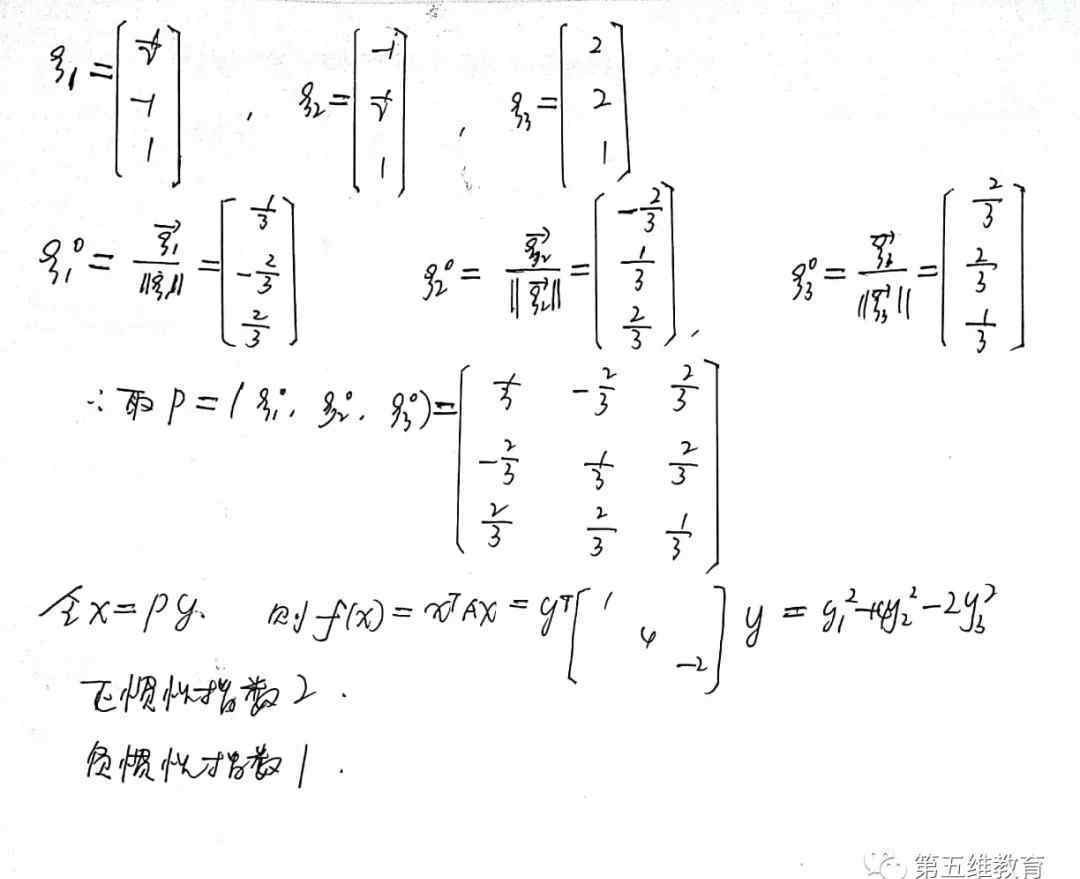 ξ₁ = [½, -1, 1], ξ₂ = [-1, ½, 1], ξ₃ = [2, 2, 1]
ξ₁⁰ = ξ₁/‖ξ₁‖ = [1/3, -2/3, 2/3] ξ₂⁰ = ξ₂/‖ξ₂‖ = [-2/3, 1/3, 2/3], ξ₃⁰ = ξ₃/‖ξ₃‖ = [2/3, 2/3, 1/3]
∴取 P = (ξ₁⁰, ξ₂⁰, ξ₃⁰) = [1/3 -2/3 2/3; -2/3 1/3 2/3; 2/3 2/3 1/3]
令 x = Py. 则 f(x) = xᵀAx = yᵀ[1 4 -2] y = y₁²+4y₂²-2y₃²
正惯性指数2.
负惯性指数1.
第五维教育